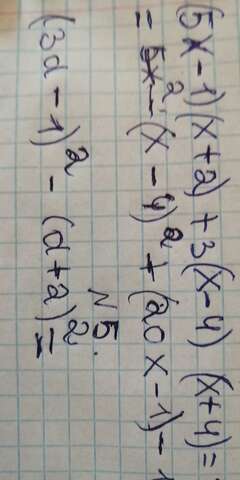 (5x-1)(x+2)+3(x-4)(x+4)=
=5x²-(x-4)²+(20x-1)-1
№5.
(3d-1)²-(d+2)²=